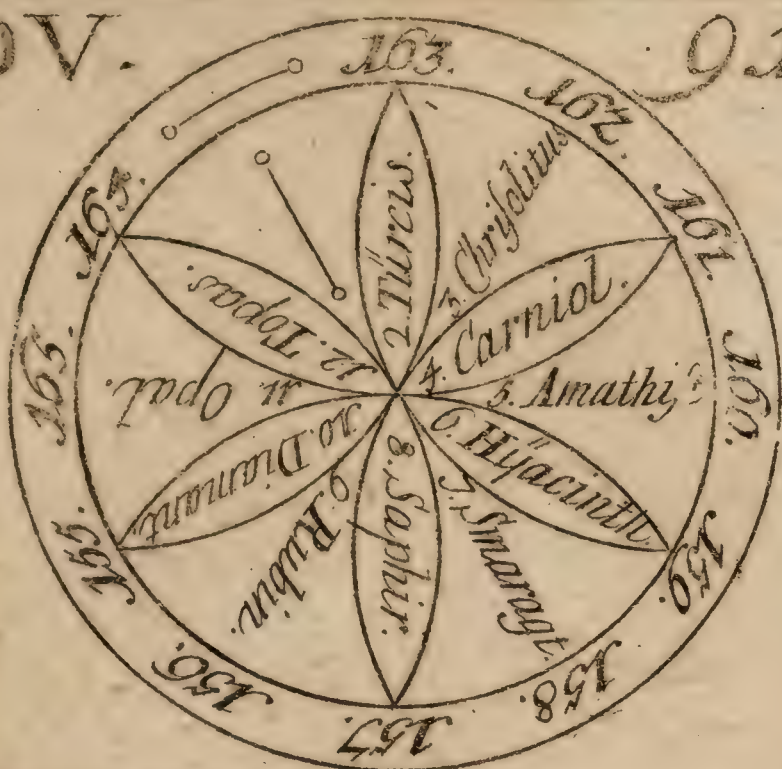 163.
162.
161.
160.
159.
158.
157.
156.
155.
165.
165.
2. Türcis.
3. Chrisolitus
4. Carniol.
5. Amathÿ
6. Hÿacinth.
7. Smaragt.
8. Saphir.
9. Rubin.
10. Diamant.
11. Opal.
12. Topas.